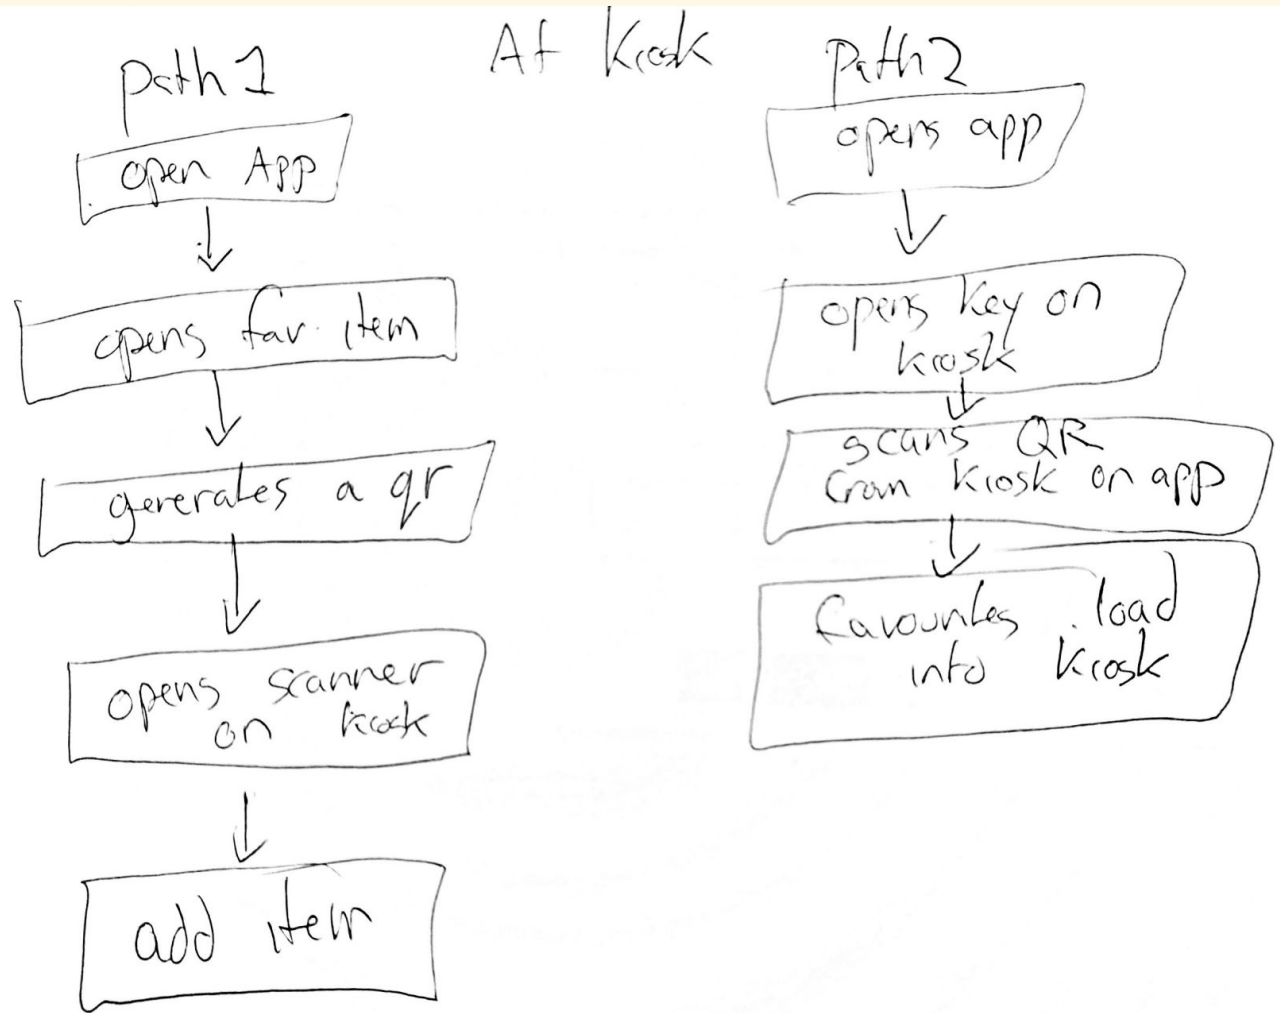 At Kiosk
path 1
open App
opens fav. item
generates a qr
opens scanner
on kiosk
add item
Path 2
opens app
opens key on
kiosk
scans QR
from kiosk on app
favourites load
into kiosk